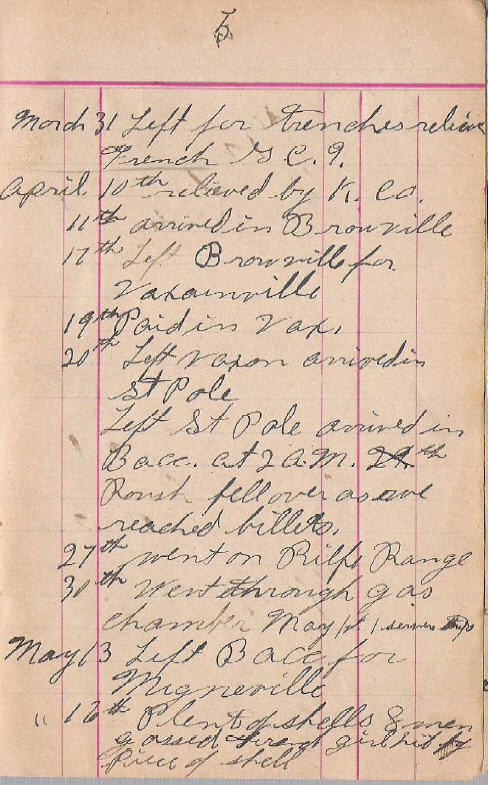 5
March 31 Left for trenches relieve
French G C. 9.
April 10th relieved by K. Co.
11th arrived in Brouville
17th Left Brouville for
Vaxainville
19th Paid in Vax.
20th Left Vaxon arrived in
St Pole
Left St Pole arrived in
Bacc. at 2 A.M. 24th
Roush fell over as we
reached billets.
27th went on Rilfe Range
30th Went through gas
chamber May 1st 1
May 13 Left Bacc for
Migneville
" 16th Plent of shells & men
gassed girl hit by
piece of shell